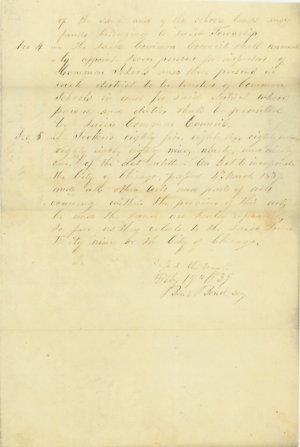 of the same and of the school lands and
funds belonging to said Township
Sec 4 The said Common Council shall annual
ly appoint seven persons for inspectors of
Common Schools and three persons in
each district to be trustees of Common
Schools in and for said district whose
powers and duties shall be prescribed
by said Common Council.
Sec. 5 Sections eighty five, eighty six, eighty seven
eighty eight, eighty nine, ninety, and ninety
of the Act entitled An Act to incorporate
the City of Chicago, passed 4 March 1837
and all other acts and parts of acts
coming within the purview of this act
be and the same are hereby repealed
so far as they relate to the said
for the City of Chicago.
Feby 19th 1839